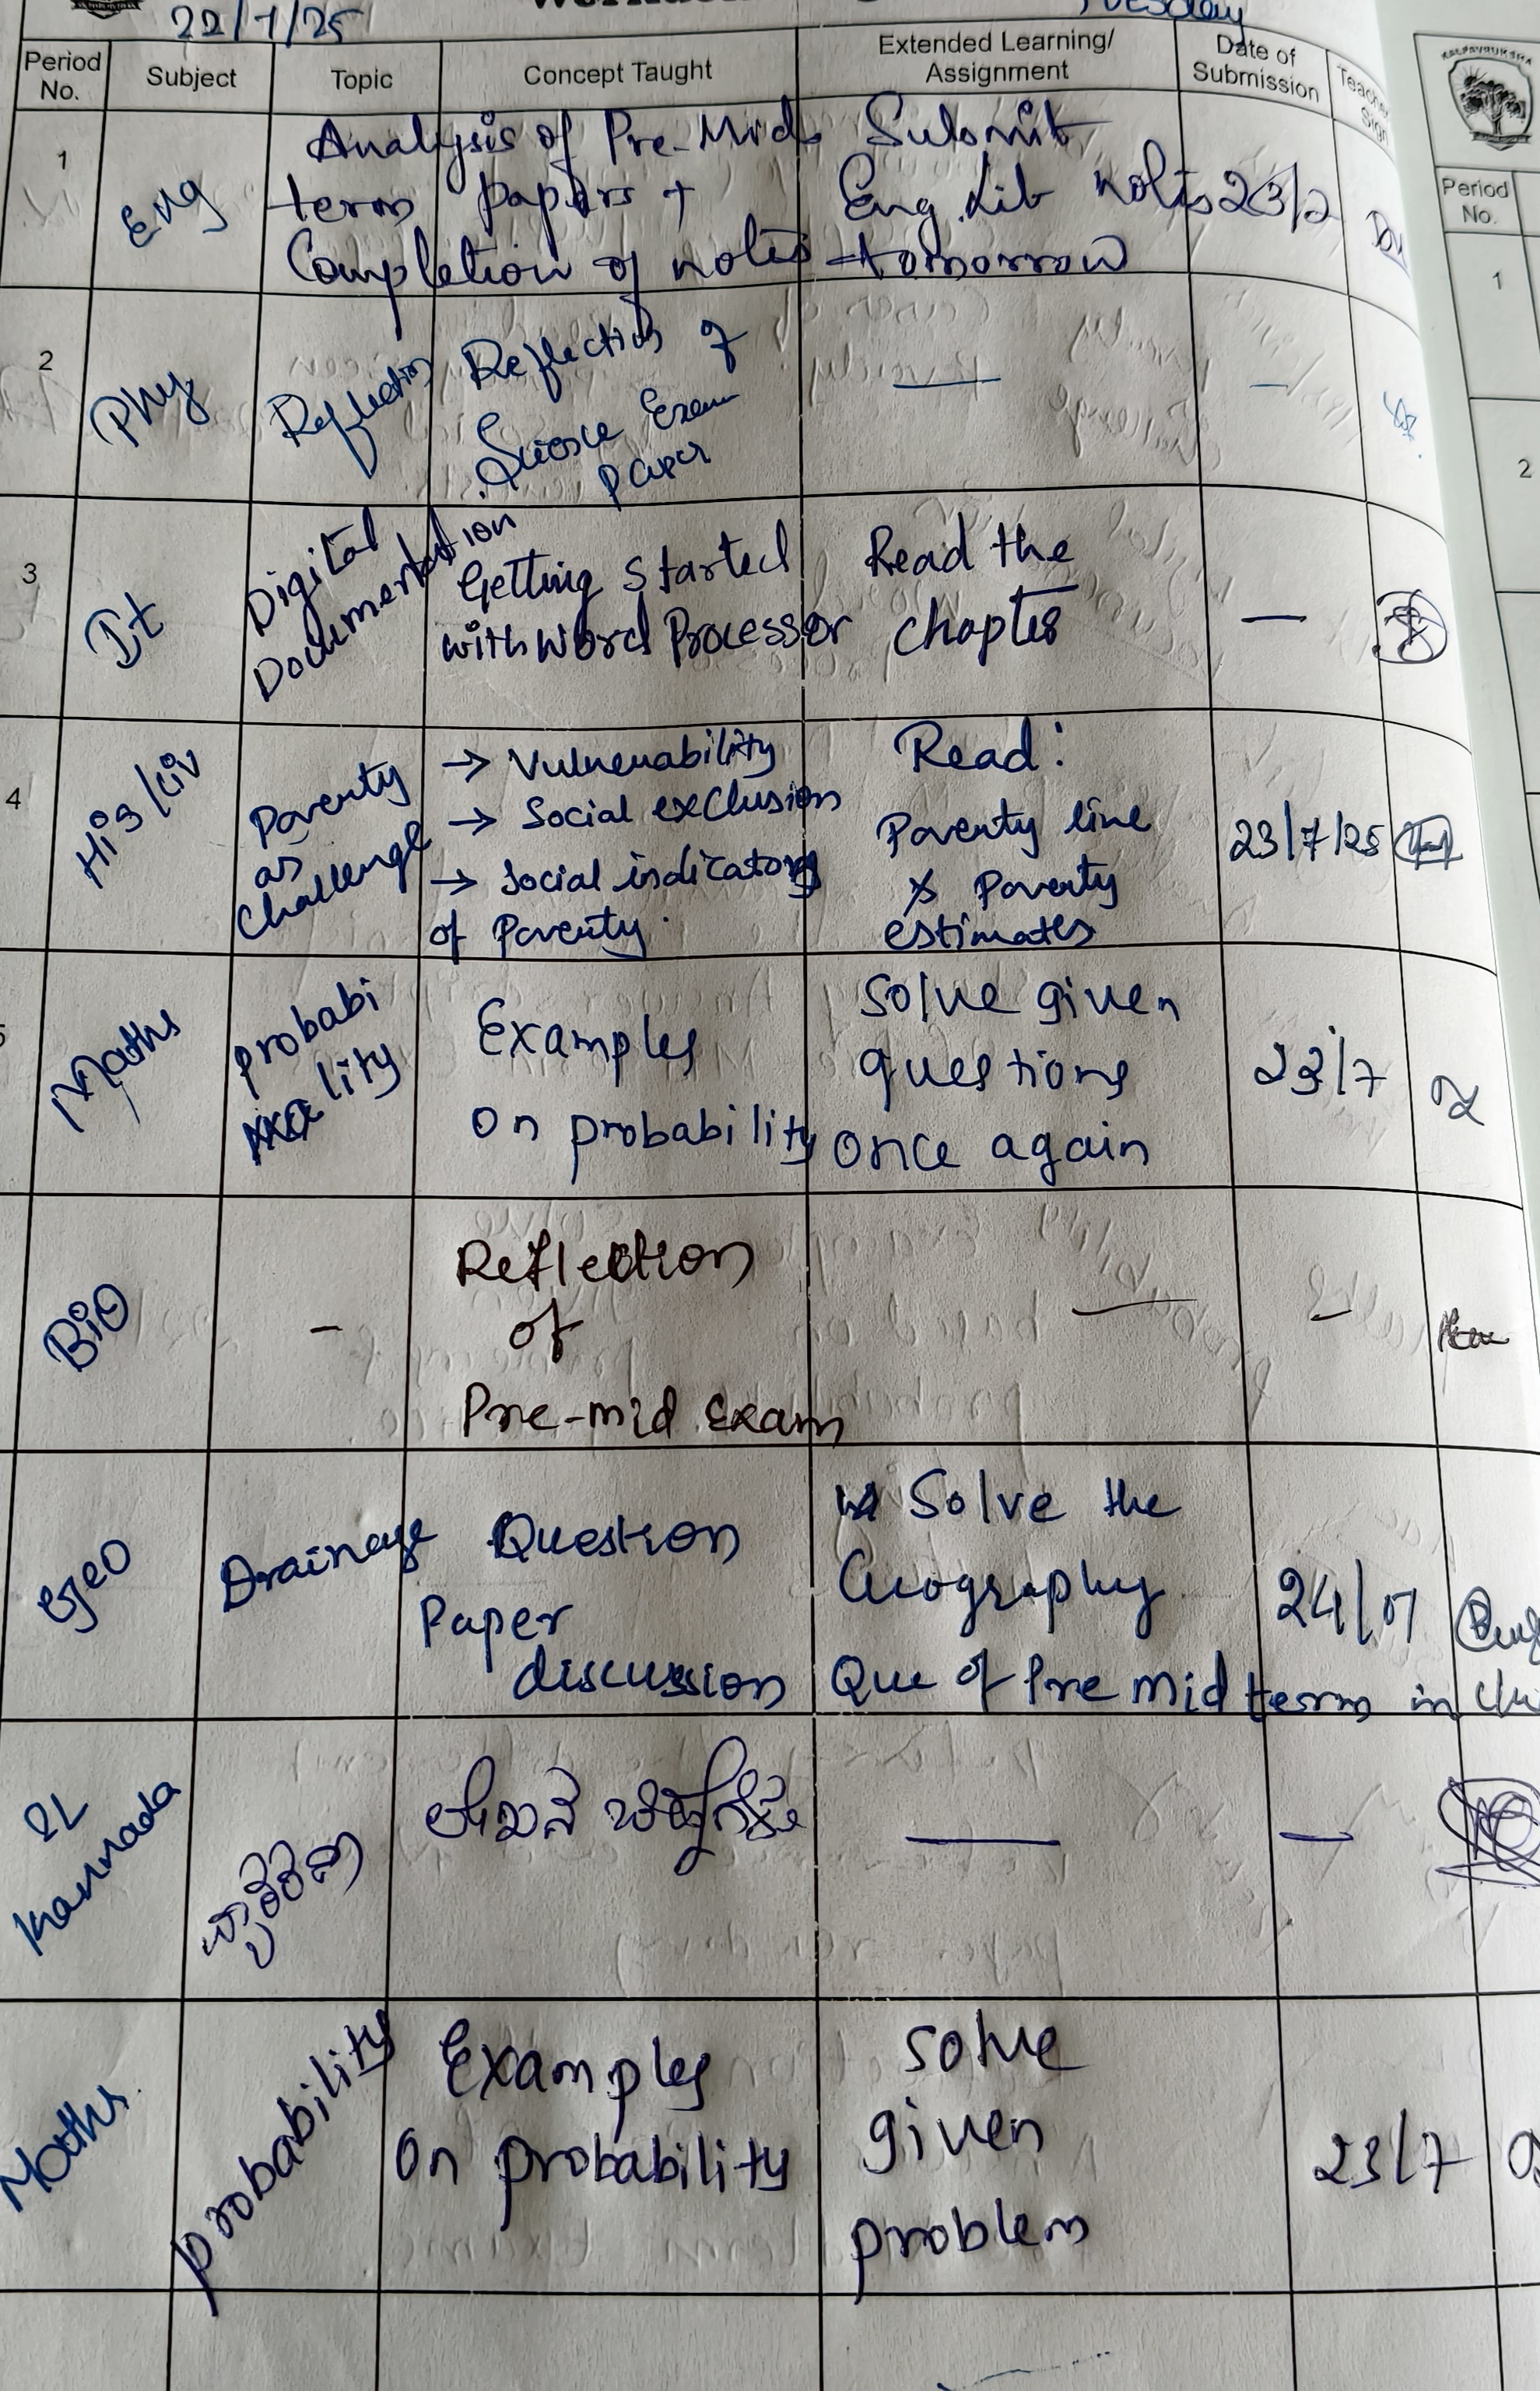 22/7/25
Tuesday
Period No.
Subject
Topic
Concept Taught
Extended Learning/ Assignment
Date of Submission
1
Eng
Analysis of Pre-Mid
term papers +
Completion of notes
Submit
Eng Lib notes
tomorrow
2
Phy
Reflection
Reflection of
Science Exam
paper
—
—
3
It
Digital
Documentation
Getting started
with Word Processor
Read the
chapter
—
4
His/Civ
Poverty
as
Challenge
→ Vulnerability
→ Social exclusion
→ Social indicators
of Poverty.
Read:
Poverty line
& Poverty
estimates
23/7/25
Maths
probabi
lity
Examples
on probability
Solve given
questions
once again
23/7
BiO
-
Reflection
of
Pre-mid Exam
—
-
Geo
Drainage
Question
Paper
discussion
Solve the
Geography
Que of Pre mid term in
24/07
2L
Kannada
—
—
Maths
probability
Examples
on probability
solve
given
problem
23/7
KALPAVRUKSHA
Period No.
1
2